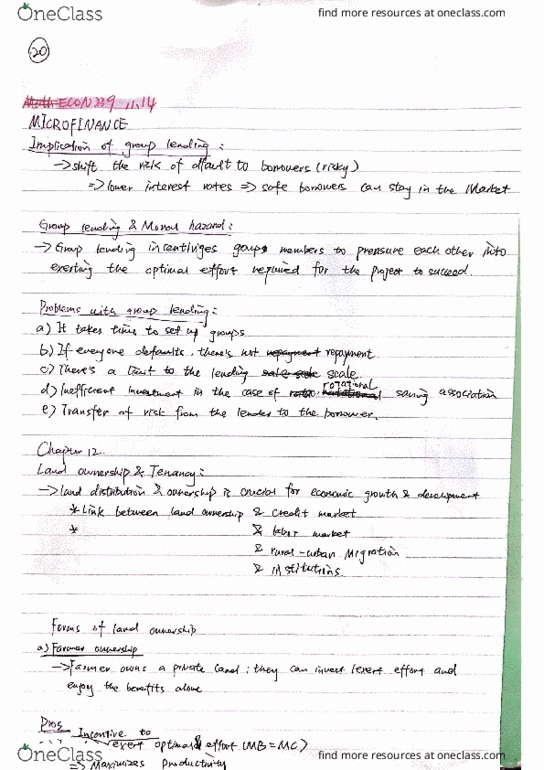 OneClass
find more resources at oneclass.com
20
ECON 239 11.14
MICROFINANCE
Implication of group lending :
→ shift the risk of dfault to borrowers (risky)
⇒ lower interest rates ⇒ safe borrowers can stay in the Market
Group lending & Moral hazard :
→ Group lending incentiviges group members to pressure each other into
exerting the optimal effort required for the project to succeed.
Problems with group lending :
a) It takes time to set up groups
b) If everyone defaults, there's not repayment repayment.
c) There's a limit to the lending scale.
rotational
d) Inefficient investment in the case of saving association
e) Transfer of risk from the lender to the borrower.
Chapter 12.
Land ownership & Tenancy :
→ land distribution & ownership is crucial for economic growth & development
* Link between land ownership & credit market
* & labor market
& rural-urban Migration
& institutions.
Forms of land ownership
a) Farmer ownership
→ Farmer owns a private land : they can invest / exert effort and
enjoy the benefits alone
Pros Incentive to
exert optimal effort (MB = MC)
⇒ Maximizes Productivity
OneClass
find more resources at oneclass.com